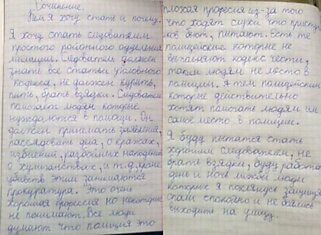 Сочинение.
Кем я хочу стать и почему.
Я хочу стать следователем
простого районного отделения
милиции. Следователь должен
знать все статьи уголовного
кодекса, не должен курить,
пить, брать взятки. Следователь
помогать людям которые
нуждаются в помощи. Он
должен принимать заявления,
расследовать дела, о кражах,
избиений, разбойных нападений
о хулиганствах, и т.д. кроме
убийств этим занимается
прокуратура. Это очень
хорошая профессия но некоторые
не понимают. Все люди
думают что полиция это
плохая профессия из-за того
что ходят слухи что преступ
ков бьют, пытают. Есть те
полицейские которые не
выполняют кодекс чести,
таким людям не место в
полиции. А тем полицейским
которые действительно
хотят помогать людям им
самое место в полиции.
Я буду пытаться стать
хорошим следователем, не
брать взятки, буду работать
день и ночь чтобы люди
которые я поклянусь защищать
спали спокойно и не боялись
выходить на улицу.